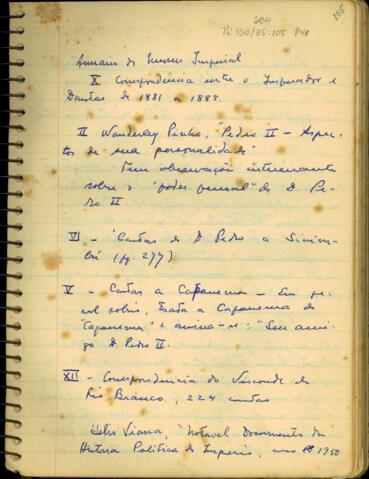 106
Anuario do Museu Imperial
X Correspondencia entre o Imperador e
Dantas de 1881 a 1888.
II Wanderley Pinho, "Pedro II - Aspec-
tos de sua personalidade"
Tem observações interessantes
sobre o "poder pessoal" de D Pe-
dro II.
VI - Cartas de D Pedro a Sinim-
bú (pg. 277)
V - Cartas a Capanema - Em ge-
ral sobrio, trata a Capanema de
"Capanema" e assina-se: "Seu ami-
go D Pedro II.
XII - Correspondencia do Visconde do
Rio Branco, 224 cartas
Helio Viana, "Notavel Documento da
Historia Politica do Imperio, 1950